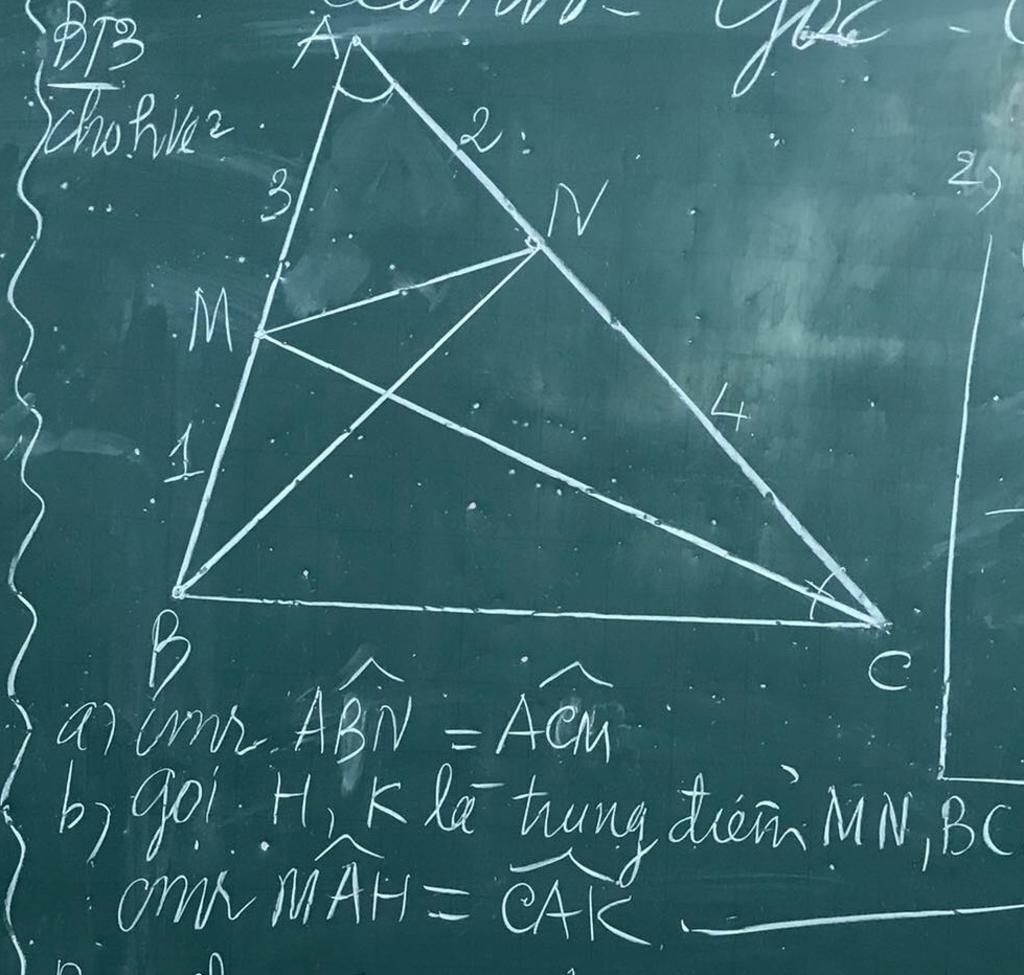 BT3
cho hvẽ
A
2
3
N
2)
M
4
1
B
C
a) cmr ABN = ACM
b) gọi H, K là trung điểm MN, BC
cmr MAH = CAK